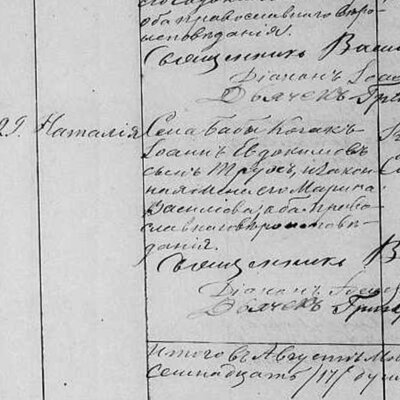 оба православнаго вѣро-
исповѣданія.
Священникъ Васи
Діаконъ Іоа
Дьячекъ Гри
29. Наталія
Села Бабы Козакъ
Іоаннъ Евдокимовъ
сынъ Трусъ, и закон-
ная жена его Марина
Василіева; оба право-
славнаго вѣроисповѣ-
данія.
Священникъ В
Діаконъ
Дьячекъ Григ
Итого въ Августѣ Мѣ
семнадцать /17/ душ